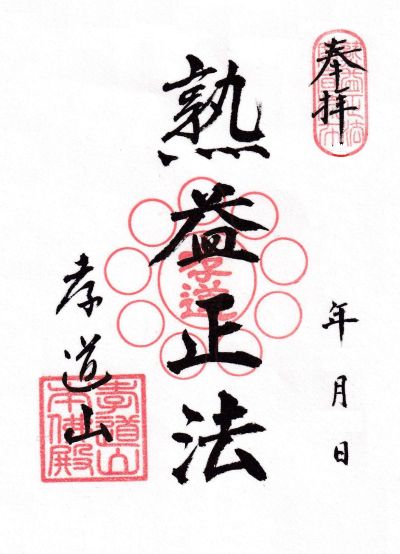 奉拝
熟益正法
年月日
孝道山
孝道
孝道山
本佛殿